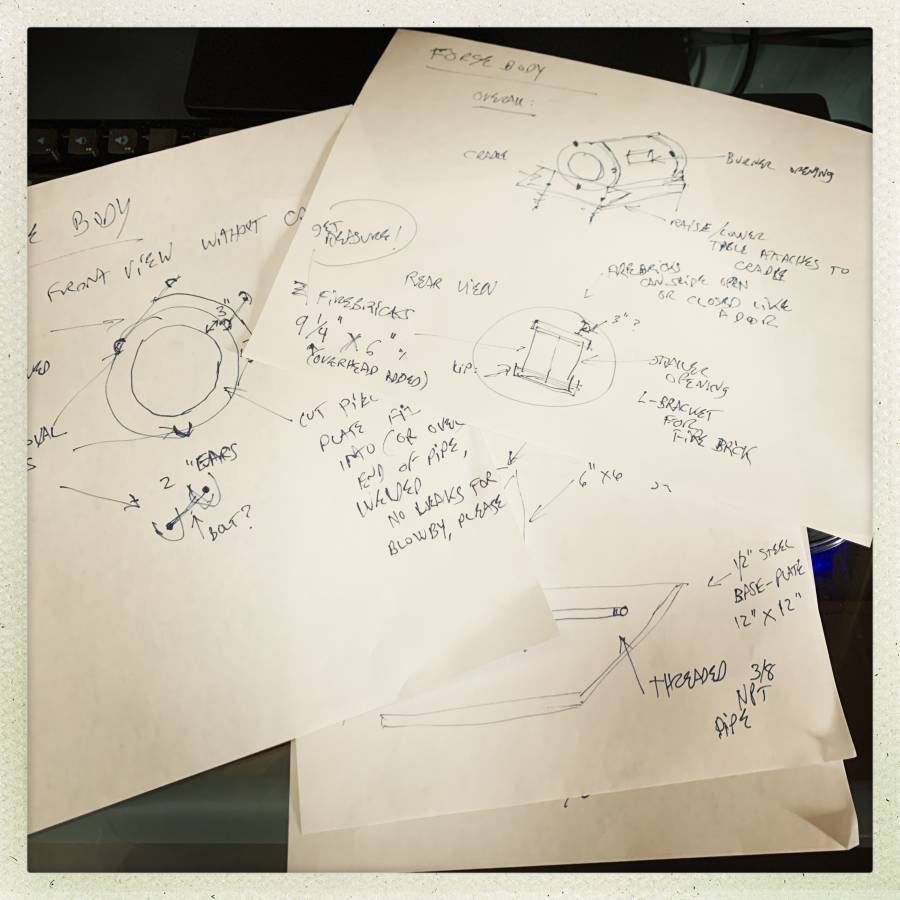 FORGE BODY
OVERALL:
CRADLE
BURNER OPENING
RAISE/LOWER
TABLE ATTACHES TO
CRADLE
GET
MEASURE!
REAR VIEW
FIREBRICKS
CAN SLIDE OPEN
OR CLOSED LIKE
A DOOR
FIREBRICKS
9 1/4" X 6"
(OVERHEAD ADDED)
3"?
LIP:
SMALLER
OPENING
L-BRACKET
FOR
FIRE BRICK
BODY
FRONT VIEW WITHOUT
3"
CUT
PLATE
INTO (OR OVER
END OF PIPE,
WELDED
NO LEAKS FOR
BLOWBY, PLEASE
2 "EARS
BOLT?
6" X 6
??
1/2" STEEL
BASE-PLATE
12" X 12"
THREADED 3/8
NPT
PIPE